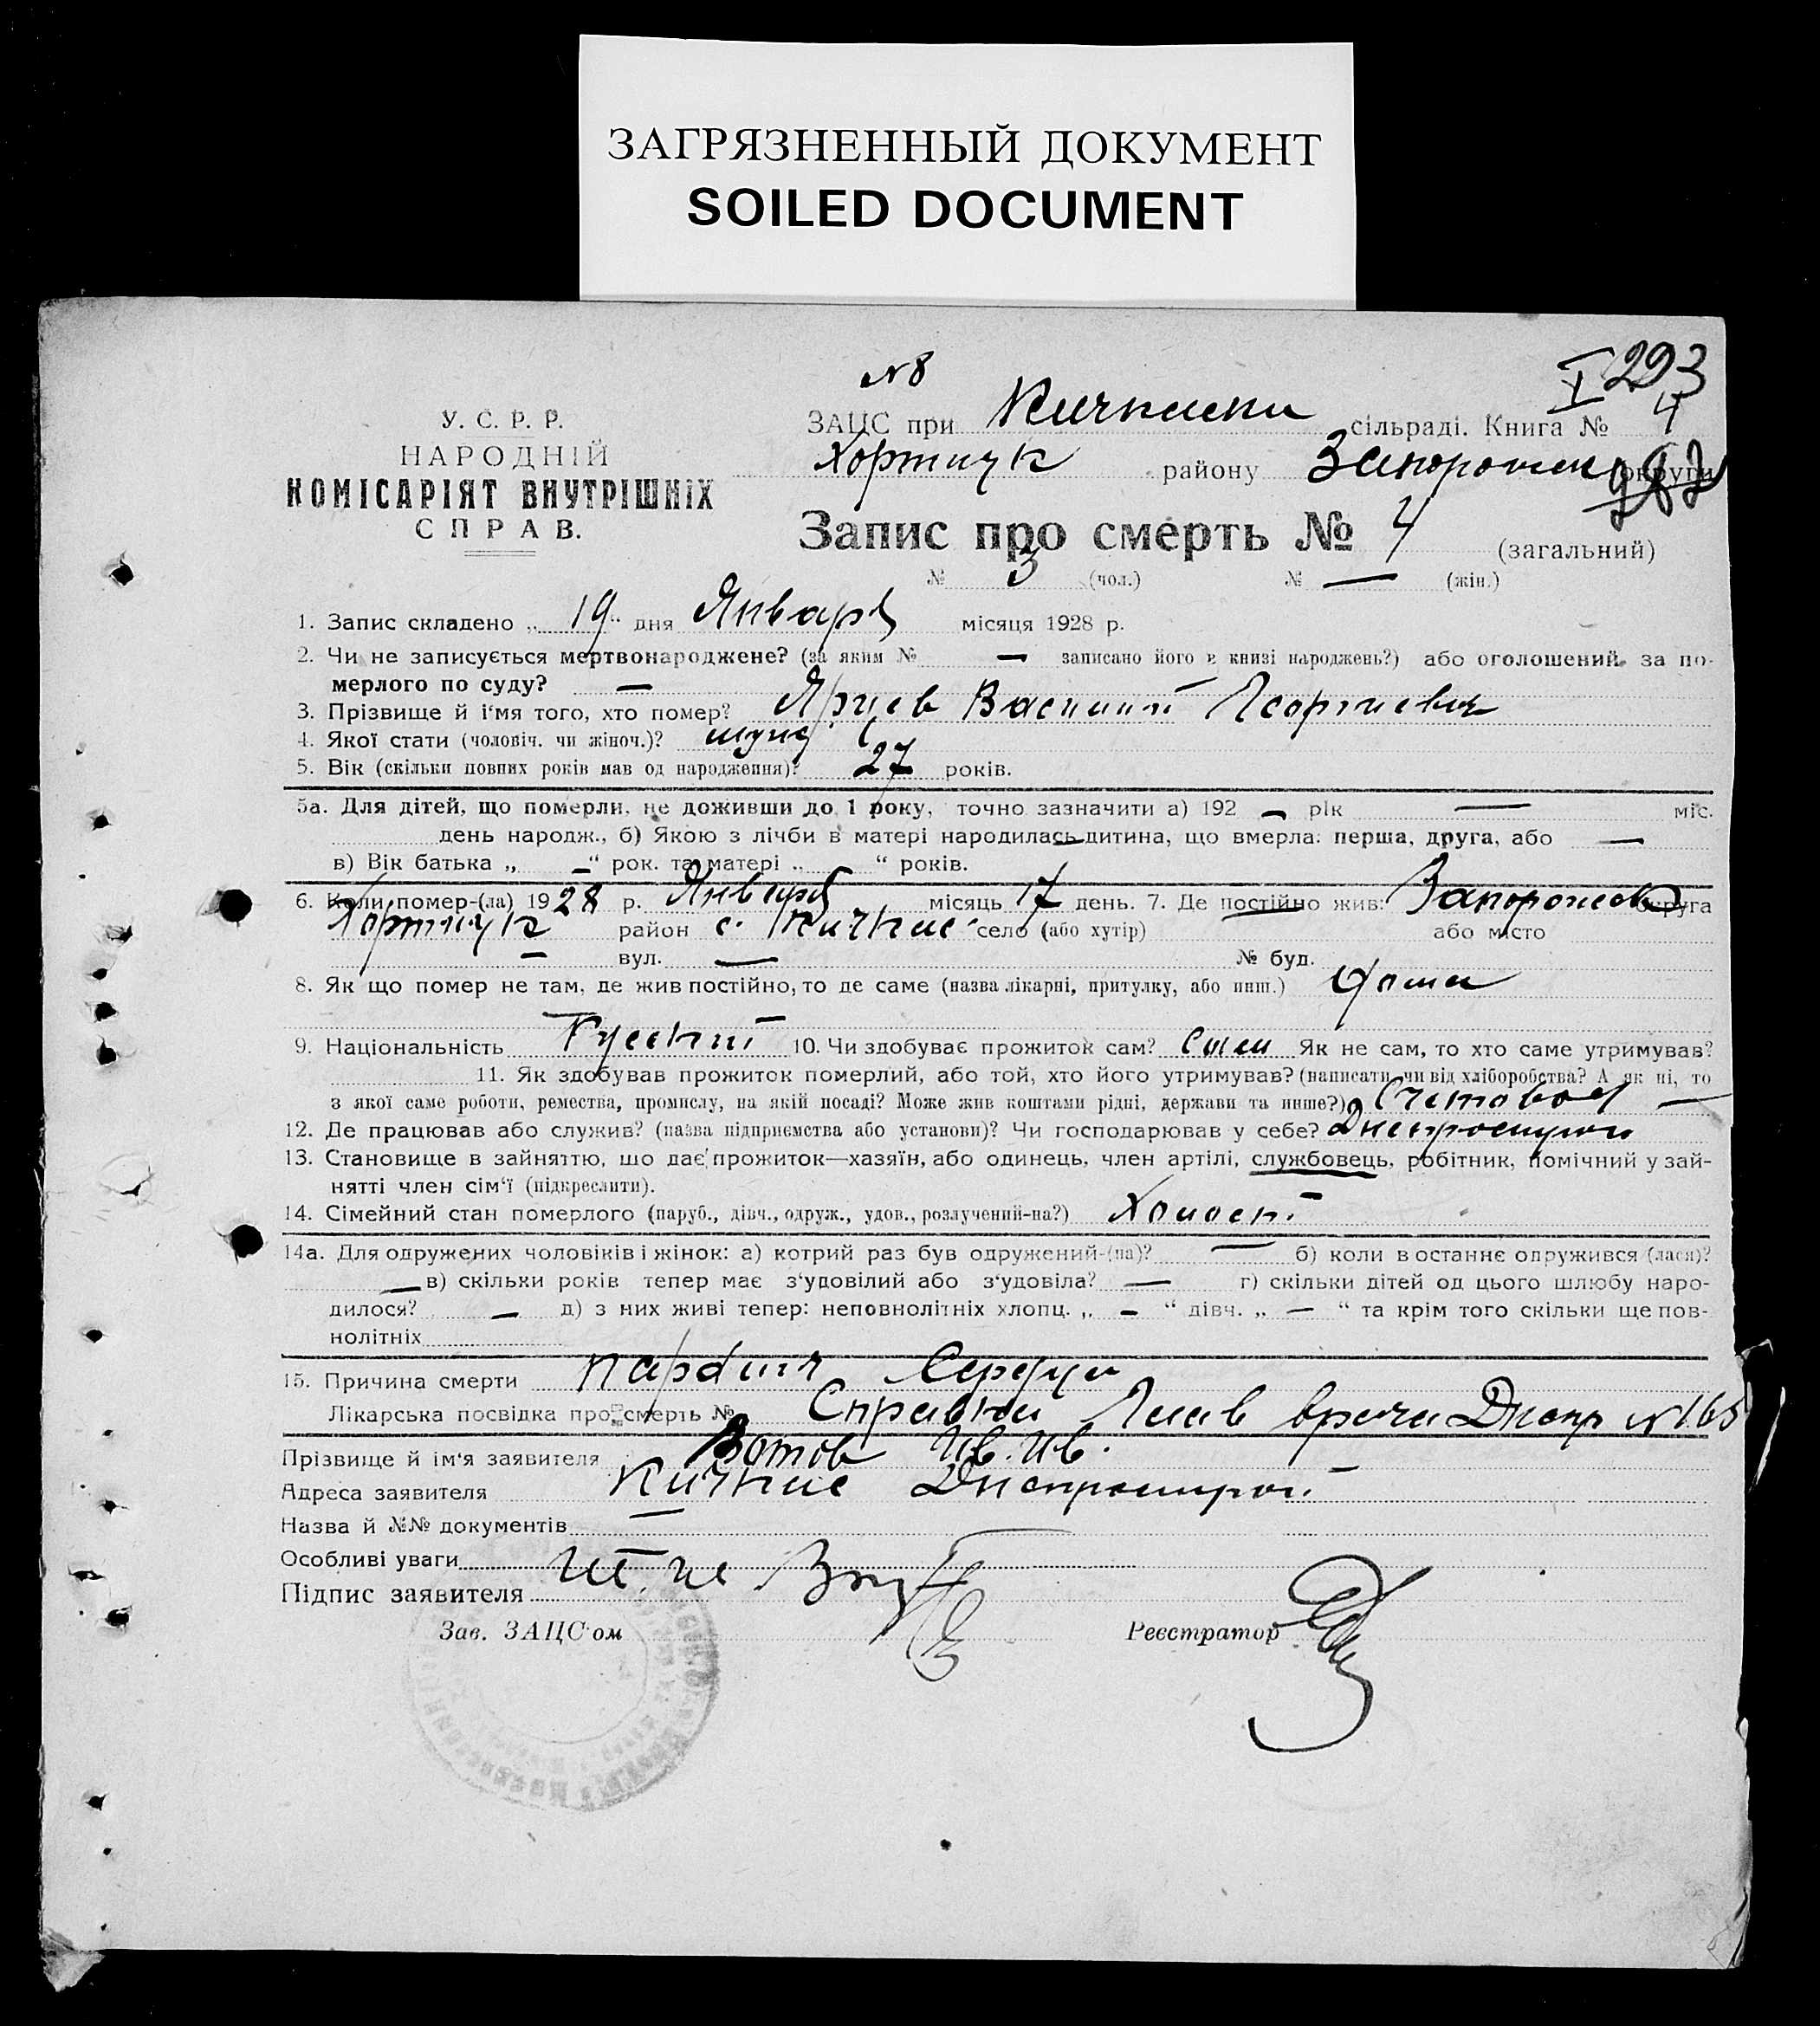 ЗАГРЯЗНЕННЫЙ ДОКУМЕНТ
SOILED DOCUMENT
293
N8
У. С. Р. Р.
НАРОДНІЙ
КОМІСАРІЯТ ВНУТРІШНІХ
СПРАВ.
ЗАЦС при Кичкаски сільраді. Книга № 4
Хортицк району Запорожск округи
Запис про смерть № 4 (загальний)
№ 3 (чол.) № — (жін.)
1. Запис складено „ 19 “ дня Января місяця 1928 р.
2. Чи не записується мертвонароджене? (за яким № — записано його в книзі народжень?) або оголошений за по-
мерлого по суду? —
3. Прізвище й і'мя того, хто помер? Ярцев Василий Георгиевич
4. Якої стати (чоловіч. чи жіноч.)? муж
5. Вік (скільки повних років мав од народження)? 27 років.
5а. Для дітей, що померли, не доживши до 1 року, точно зазначити а) 192 — рік — міс.
день народж., б) Якою з лічби в матері народилась дитина, що вмерла: перша, друга, або —
в) Вік батька „ — “ рок. та матері „ “ років.
6. Коли помер-(ла) 1928 р. Января місяць 17 день. 7. Де постійно жив: Запорожск округа
Хортицк район с. Кичкас село (або хутір) або місто
— вул. — № буд.
8. Як що помер не там, де жив постійно, то де саме (назва лікарні, притулку, або инш.) дома
9. Національність Русский 10. Чи здобуває прожиток сам? Сам Як не сам, то хто саме утримував?
11. Як здобував прожиток померлий, або той, хто його утримував? (написати, чи від хліборобства? А як ні, то
з якої саме роботи, ремества, промислу, на якій посаді? Може жив коштами рідні, держави та инше?) Счетовод —
12. Де працював або служив? (назва підприємства або установи)? Чи господарював у себе? Днепрострой
13. Становище в зайняттю, що дає прожиток—хазяїн, або одинець, член артілі, службовець, робітник, помічний у зай-
нятті член сім'ї (підкреслити).
14. Сімейний стан померлого (паруб., дівч., одруж., удов., розлучений-на?) Холост
14а. Для одружених чоловіків і жінок: а) котрий раз був одружений-(на)? — б) коли востаннє одружився (лася)?
— в) скільки років тепер має з'удовілий або з'удовіла? — г) скільки дітей од цього шлюбу наро-
дилося? — д) з них живі тепер: неповнолітніх хлопц. „ — “ дівч. „ — “ та крім того скільки ще пов-
нолітніх
15. Причина смерти Сердца
Лікарська посвідка про смерть № Справка Глав врача Днепр N165
Прізвище й ім'я заявителя Ив. Ив.
Адреса заявителя Кичкас Днепрострой
Назва й №№ документів —
Особливі уваги
Підпис заявителя
Зав. ЗАЦС'ом Реєстратор